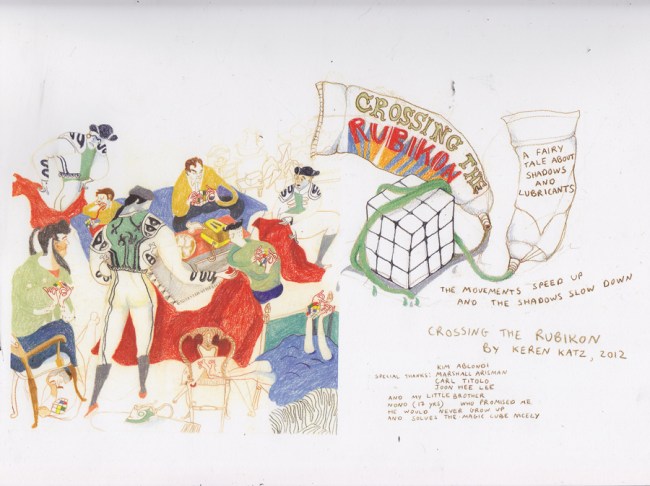 CROSSING THE
RUBIKON
A FAIRY
TALE ABOUT
SHADOWS
AND
LUBRICANTS
THE MOVEMENTS SPEED UP
AND THE SHADOWS SLOW DOWN
CROSSING THE RUBIKON
BY KEREN KATZ, 2012
KIM ABLONDI
SPECIAL THANKS: MARSHALL ARISMAN
CARL TITOLO
JOON HEE LEE
AND MY LITTLE BROTHER
NONO (13 YRS) WHO PROMISED ME
HE WOULD NEVER GROW UP
AND SOLVES THE MAGIC CUBE NICELY